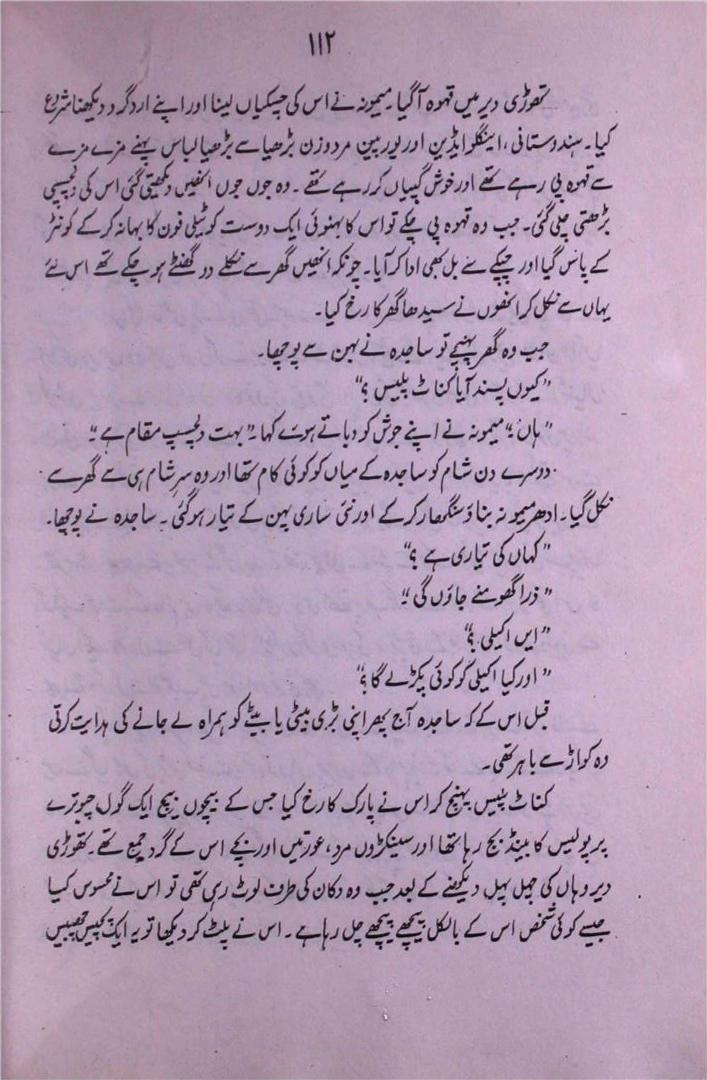 ۱۱۲
تھوڑی دیر میں قہوہ آگیا۔ میمونہ نے اس کی چسکیاں لینا اور اپنے اردگرد دیکھنا شروع
کیا۔ ہندوستانی، اینگلو انڈین اور یورپین مرد و زن بڑھیا سے بڑھیا لباس پہنے مزے مزے
سے قہوہ پی رہے تھے اور خوش گپیاں کر رہے تھے۔ وہ جوں جوں انھیں دیکھتی گئی اس کی دلچسپی
بڑھتی چلی گئی۔ جب وہ قہوہ پی چکے تو اس کا بہنوئی ایک دوست کو ٹیلی فون کا بہانہ کر کے کونٹر
کے پاس گیا اور چپکے سے بل بھی ادا کر آیا۔ چونکہ انھیں گھر سے نکلے دو گھنٹے ہو چکے تھے اس لئے
یہاں سے نکل کر انھوں نے سیدھا گھر کا رخ کیا۔
جب وہ گھر پہنچے تو ساجدہ نے بہن سے پوچھا۔
"کیوں پسند آیا کناٹ پلیس؟"
"ہاں۔" میمونہ نے اپنے جوش کو دباتے ہوئے کہا۔ "بہت دلچسپ مقام ہے۔"
دوسرے دن شام کو ساجدہ کے میاں کو کوئی کام تھا اور وہ سرِ شام ہی سے گھر سے
نکل گیا۔ ادھر میمونہ بناؤ سنگھار کر کے اور نئی ساری پہن کے تیار ہو گئی۔ ساجدہ نے پوچھا۔
"کہاں کی تیاری ہے؟"
"ذرا گھومنے جاؤں گی۔"
"ایں اکیلی؟"
"اور کیا اکیلی کو کوئی پکڑ لے گا؟"
قبل اس کے کہ ساجدہ آج پھر اپنی بڑی بیٹی یا بیٹے کو ہمراہ لے جانے کی ہدایت کرتی
وہ کواڑ سے باہر تھی۔
کناٹ پلیس پہنچ کر اس نے پارک کا رخ کیا جس کے بیچوں بیچ ایک گول چبوترے
پر پولیس کا بینڈ بج رہا تھا اور سینکڑوں مرد، عورتیں اور بچے اس کے گرد جمع تھے۔ تھوڑی
دیر وہاں کی چہل پہل دیکھنے کے بعد جب وہ دکان کی طرف لوٹ رہی تھی تو اس نے محسوس کیا
جیسے کوئی شخص اس کے بالکل پیچھے پیچھے چل رہا ہے۔ اس نے پلٹ کر دیکھا تو یہ ایک پچیس چھبیس